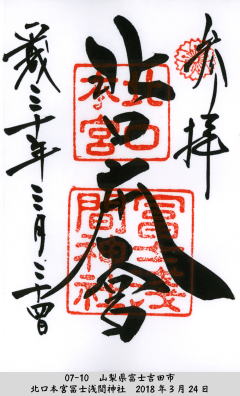 奉拝
北口本宮
平成三十年三月二十四日
北口
本宮
冨士淺
間神社
07-10　山梨県富士吉田市
北口本宮冨士浅間神社　2018年3月24日